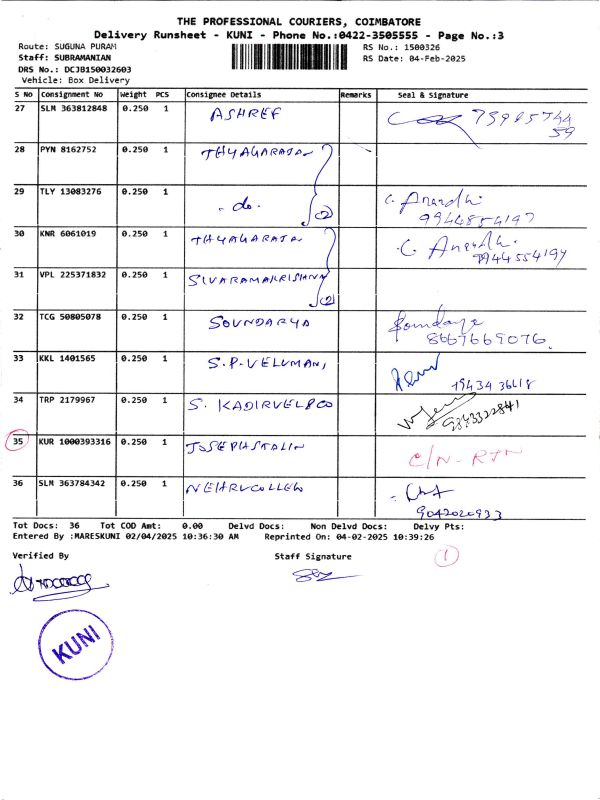 THE PROFESSIONAL COURIERS, COIMBATORE
Delivery Runsheet - KUNI - Phone No.:0422-3505555 - Page No.:3
Route: SUGUNA PURAM RS No.: 1500326
Staff: SUBRAMANIAN RS Date: 04-Feb-2025
DRS No.: DCJB150032603
Vehicle: Box Delivery
S No Consignment No Weight PCS Consignee Details Remarks Seal & Signature
27 SLM 363812848 0.250 1 ASHREF
28 PYN 8162752 0.250 1 THYAGARAJAN
29 TLY 13083276 0.250 1 - do - C. Anandhi
9944854197
30 KNR 6061019 0.250 1 THYAGARAJAN C. Anandhi
9944554197
31 VPL 225371832 0.250 1 SIVARAMAKRISHNA
32 TCG 50805078 0.250 1 SOUNDARYA Soundarya
8667669076.
33 KKL 1401565 0.250 1 S.P. VELUMANI
34 TRP 2179967 0.250 1 S. KADIRVEL & CO
9843322841
35 KUR 1000393316 0.250 1 JOSEPHSTALIN C/N - RTN
36 SLM 363784342 0.250 1 NEHRUCOLLEG
9042020933
Tot Docs: 36 Tot COD Amt: 0.00 Delvd Docs: Non Delvd Docs: Delvy Pts:
Entered By :MARESKUNI 02/04/2025 10:36:30 AM Reprinted On: 04-02-2025 10:39:26
Verified By Staff Signature 1
KUNI